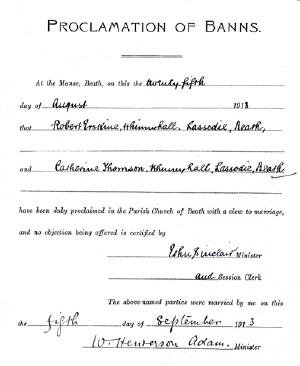 PROCLAMATION OF BANNS.
At the Manse, Beath, on this the twenty fifth
day of August 1913
that Robert Erskine, Whinnyhall, Lassodie, Beath,
and Catherine Thomson, Whinnyhall, Lassodie, Beath
have been duly proclaimed in the Parish Church of Beath with a view to marriage,
and no objection being offered is certified by
John Sinclair Minister
and Session Clerk
The above-named parties were married by me on this
the fifth day of September 1913
W. Henderson Adam. Minister